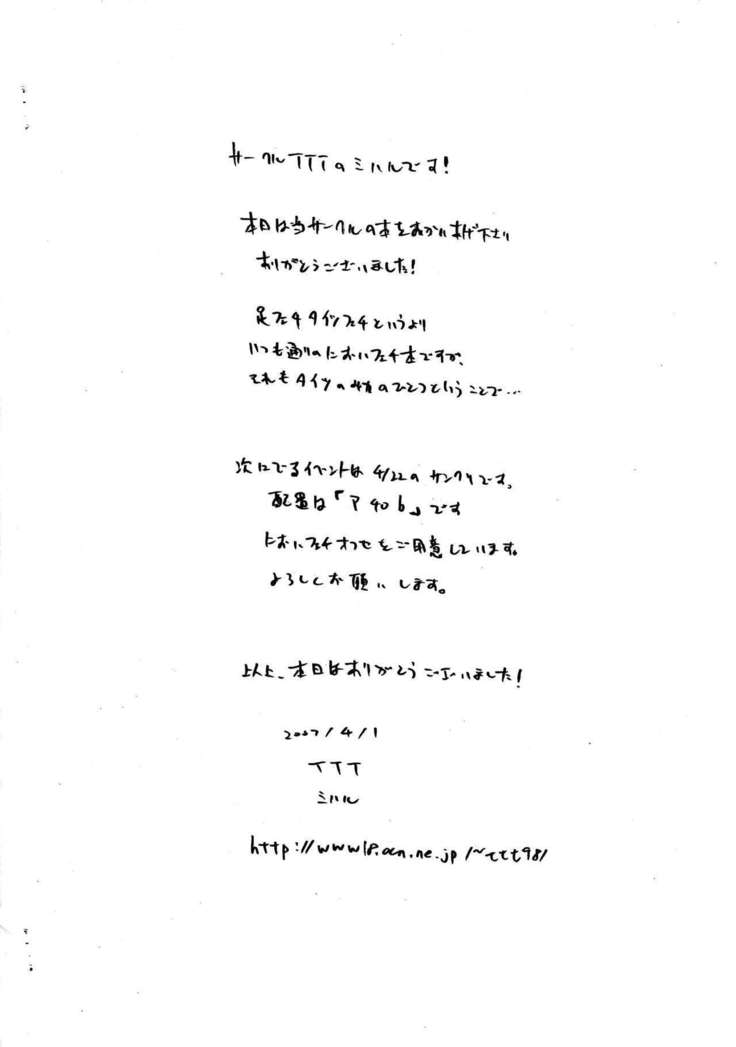 サークルTTTのミハルです!
本日は当サークルの本をおかい求め下さい
ありがとうございました!
足フェチタイツフェチというより
いつも通りのにおいフェチ本ですが、
それもタイツののひとつということで…
次にでるイベントは4/22のサンクリです。
配置は「ア40b」です
においフェチオフセをご用意しています。
よろしくお願いします。
以上、本日はありがとうございました!
2007/4/1
TTT
ミハル
http://www18.ocn.ne.jp/~ttt98/